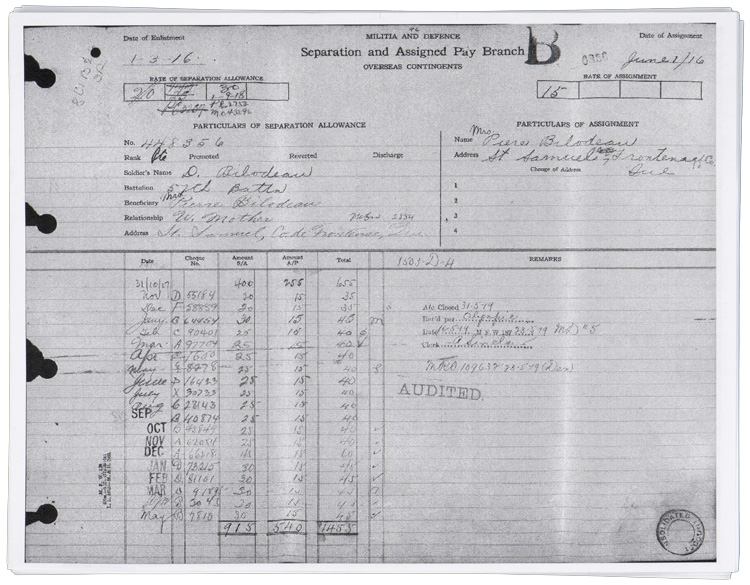 Date of Enlistment
MILITIA AND DEFENCE
Date of Assignment
1-3-16.
Separation and Assigned Pay Branch
B
OVERSEAS CONTINGENTS
June 1/16
RATE OF SEPARATION ALLOWANCE
RATE OF ASSIGNMENT
20
30
15
PARTICULARS OF SEPARATION ALLOWANCE
PARTICULARS OF ASSIGNMENT
No. 448356
Name Mrs Pierre Bilodeau
Rank Pte Promoted Reverted Discharge
Address St Samuels Frontenac Co.
Soldier's Name D. Bilodeau
Change of Address Que
Battalion 57th Battn
1
Beneficiary Mrs Pierre Bilodeau
2
Relationship W. Mother
3
Address St. Samuel, Co de Frontenac, Que
4
Date Cheque No. Amount S/A Amount A/P Total
1503-D-4
REMARKS
31/10/17 400 255 655
Nov D 55184 20 15 35
Dec F 58859 20 15 35
Jany B 64464 30 15 45 m
Feb C 90401 25 15 40
Mar A 97704 25 15 40
Apr 25 15 40
May E 8278 25 15 40
June D 16433 25 15 40
July X 30733 25 15 40
Aug C 28143 25 15 40
SEP B 40874 25 15 40
OCT 25 15 40
NOV A 62084 25 15 40
DEC A 45 15 60
JAN D 73215 30 15 45
FEB D 81101 30 15 45
MAR 30 15 45
30 15 45
May D 7810 30 15 45
915 540 1455
A/c Closed 31-5-19
Clerk
AUDITED.